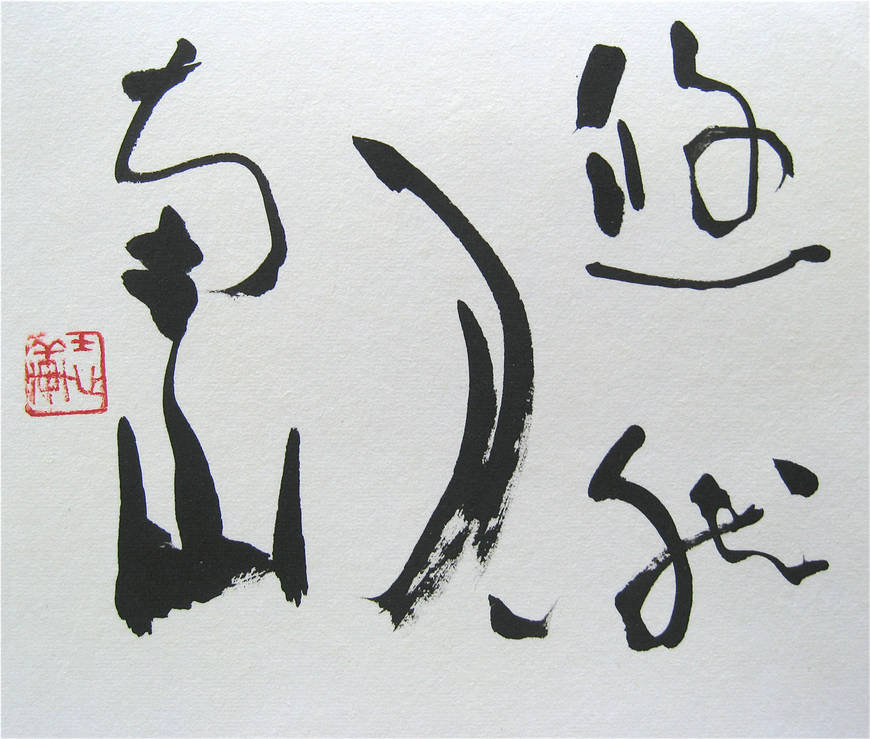 悠然
見
南山